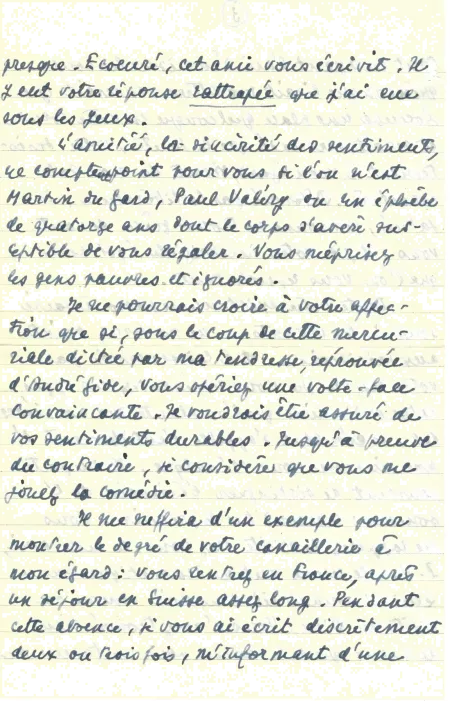 presque. Ecoeuré, cet ami vous écrivit. Il
y eut votre réponse rattrapée que j'ai eue
sous les yeux.
L'amitié, la sincérité des sentiments,
ne compte point pour vous si l'on n'est
Martin du Gard, Paul Valéry ou un éphèbe
de quatorze ans dont le corps s'avère sus-
ceptible de vous régaler. Vous méprisez
les gens pauvres et ignorés.
Je ne pourrais croire à votre affec-
tion que si, sous le coup de cette mercu-
riale dictée par ma tendresse, réprouvée
d'André Gide, vous opériez une volte-face
convaincante. Je voudrais être assuré de
vos sentiments durables. Jusqu'à preuve
du contraire, je considère que vous me
jouez la comédie.
Il me suffira d'un exemple pour
montrer le degré de votre canaillerie à
mon égard : vous rentrez en France, après
un séjour en Suisse assez long. Pendant
cette absence, je vous ai écrit discrètement
deux ou trois fois, m'informant d'une